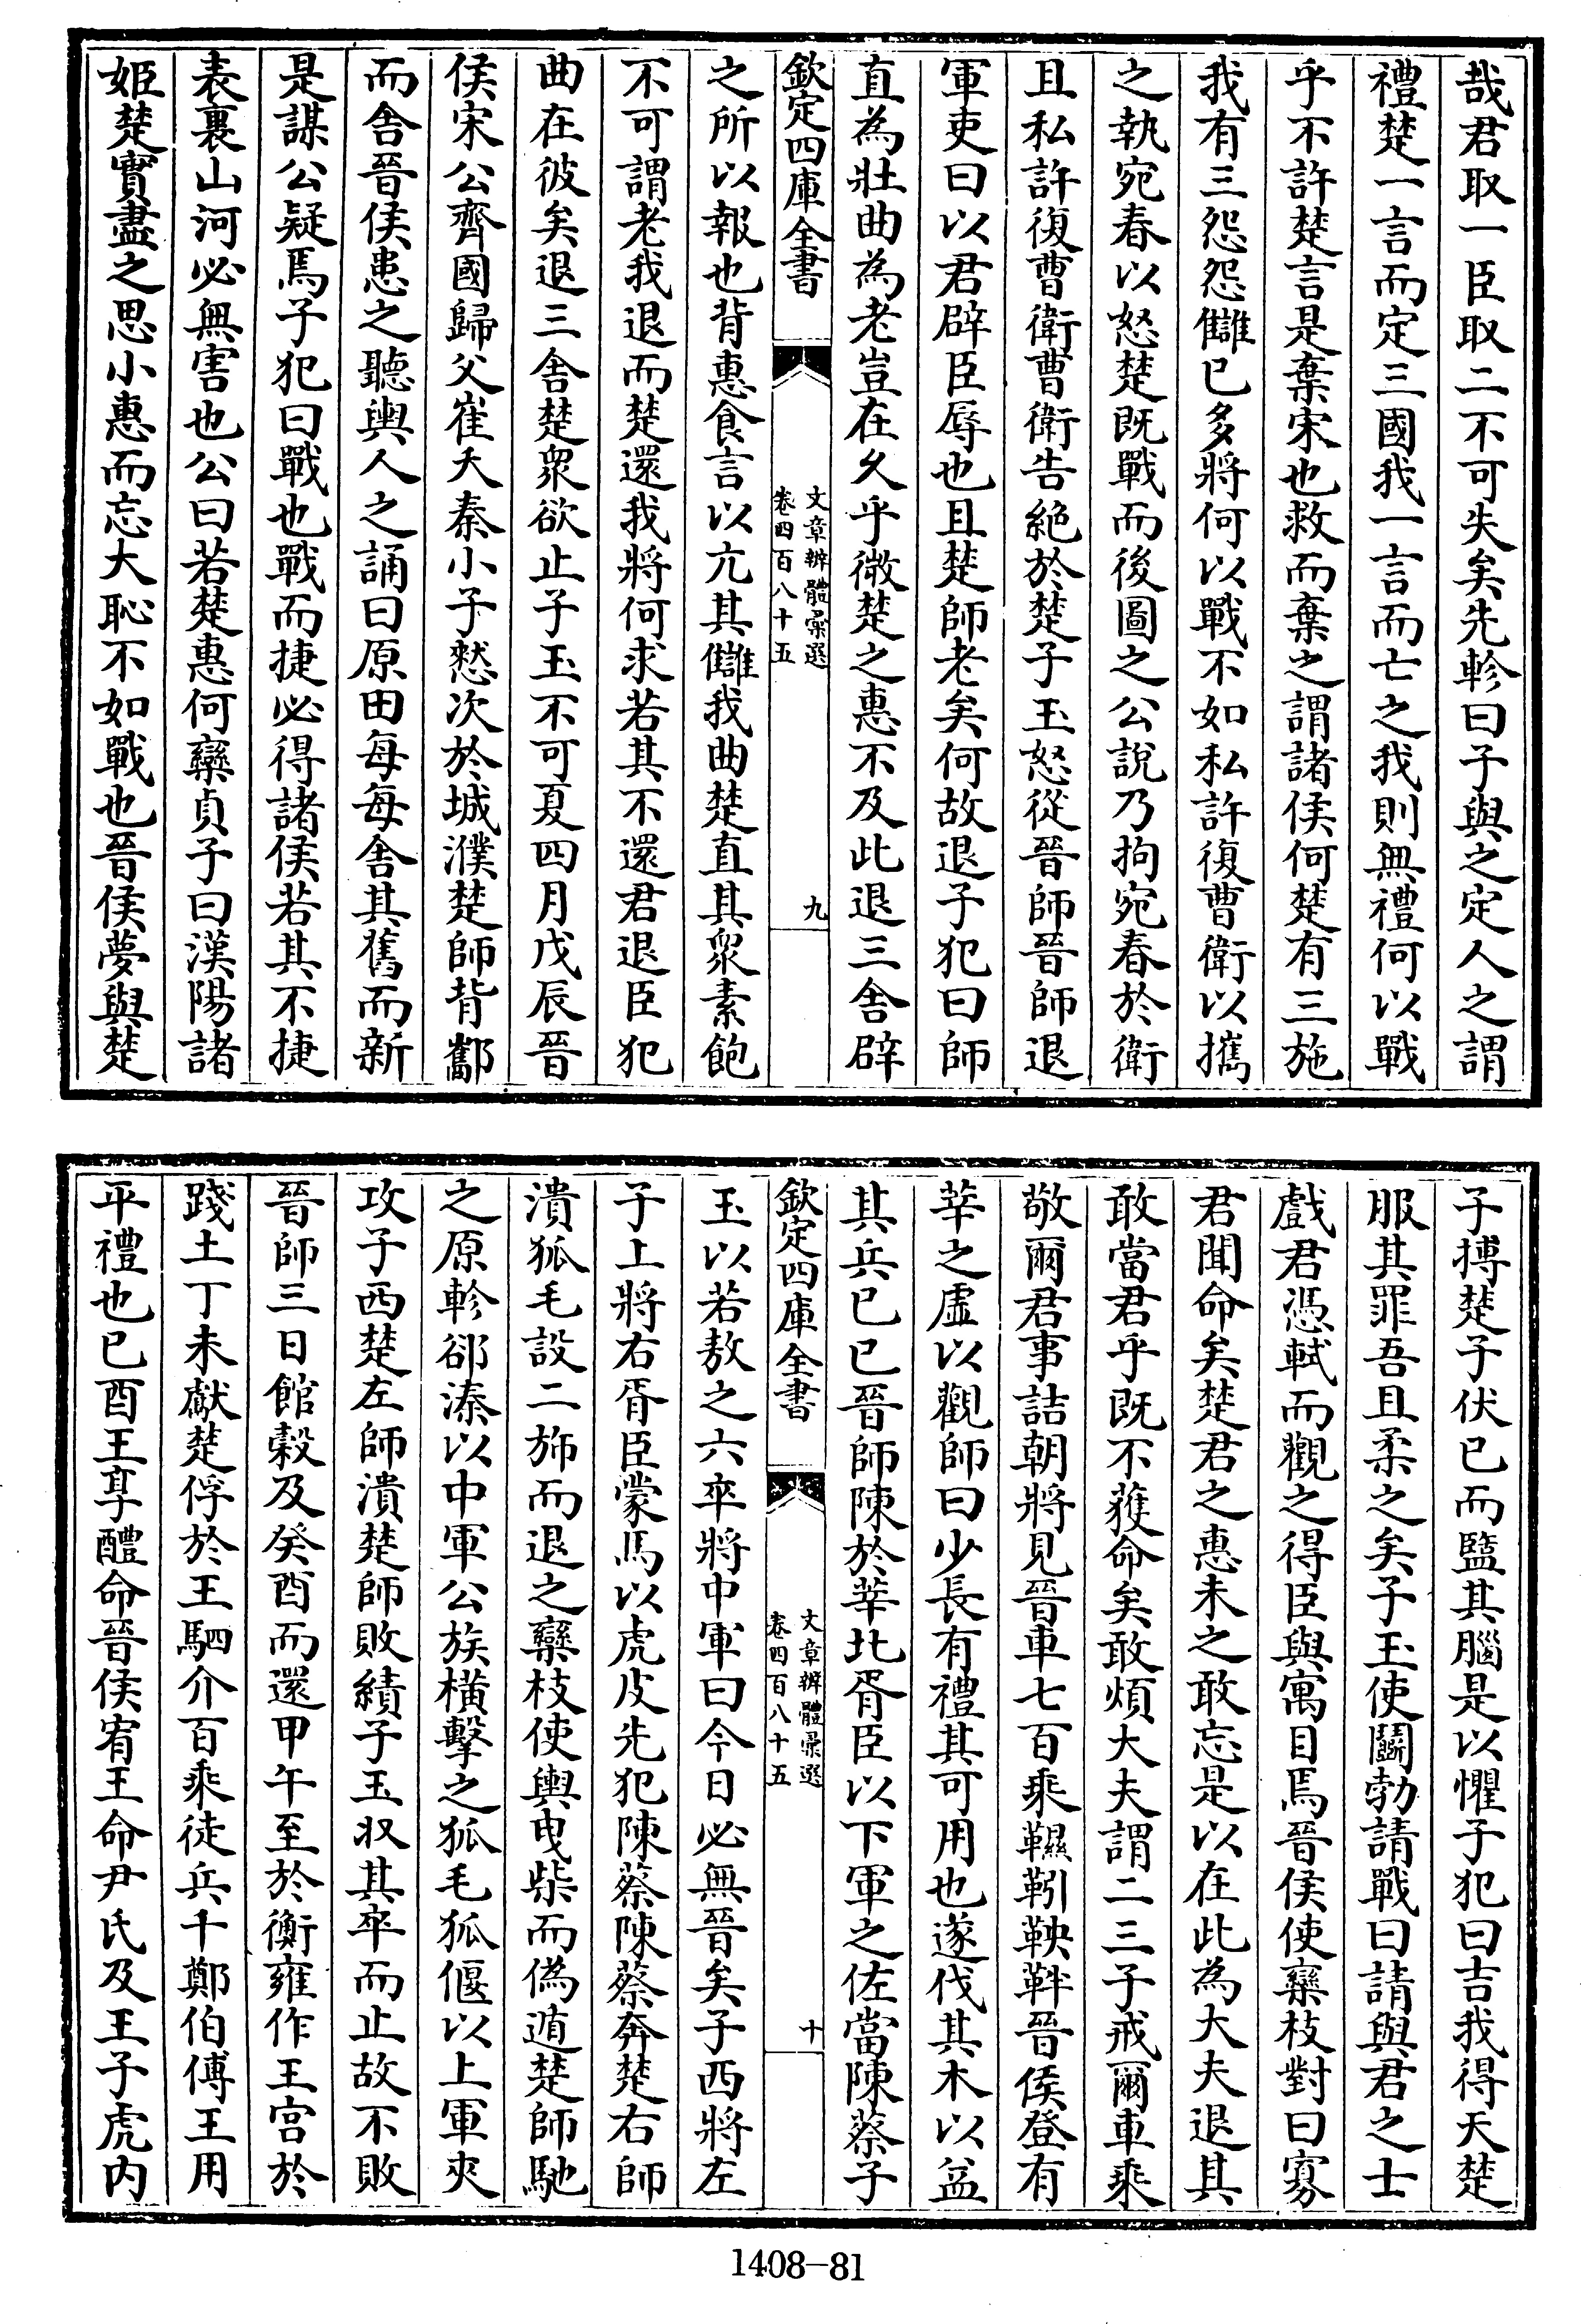 哉君取一臣取二不可失矣先軫曰子與之定人之謂
禮楚一言而定三國我一言而亡之我則無禮何以戰
乎不許楚言是棄宋也救而棄之謂諸侯何楚有三施
我有三怨怨讎已多將何以戰不如私許復曹衛以攜
之執宛春以怒楚既戰而後圖之公說乃拘宛春於衛
且私許復曹衛曹衛告絶於楚子玉怒從晉師晉師退
軍吏曰以君辟臣辱也且楚師老矣何故退子犯曰師
直為壯曲為老豈在久乎微楚之惠不及此退三舍辟
欽定四庫全書
文章辨體彙選
卷四百八十五
九
之所以報也背惠食言以亢其讎我曲楚直其衆素飽
不可謂老我退而楚還我將何求若其不還君退臣犯
曲在彼矣退三舍楚衆欲止子玉不可夏四月戊辰晉
侯宋公齊國歸父崔夭秦小子憖次於城濮楚師背酅
而舍晉侯患之聽輿人之誦曰原田每每舍其舊而新
是謀公疑焉子犯曰戰也戰而捷必得諸侯若其不捷
表裏山河必無害也公曰若楚惠何欒貞子曰漢陽諸
姬楚實盡之思小惠而忘大恥不如戰也晉侯夢與楚
子搏楚子伏已而盬其腦是以懼子犯曰吉我得天楚
服其罪吾且柔之矣子玉使鬭勃請戰曰請與君之士
戲君憑軾而觀之得臣與寓目焉晉侯使欒枝對曰寡
君聞命矣楚君之惠未之敢忘是以在此為大夫退其
敢當君乎既不獲命矣敢煩大夫謂二三子戒爾車乘
敬爾君事詰朝將見晉車七百乘韅靷鞅靽晉侯登有
莘之虛以觀師曰少長有禮其可用也遂伐其木以益
其兵已巳晉師陳於莘北胥臣以下軍之佐當陳蔡子
欽定四庫全書
文章辨體彙選
卷四百八十五
十
玉以若敖之六卒將中軍曰今日必無晉矣子西將左
子上將右胥臣蒙馬以虎皮先犯陳蔡陳蔡奔楚右師
潰狐毛設二斾而退之欒枝使輿曳柴而偽遁楚師馳
之原軫郤溱以中軍公族橫擊之狐毛狐偃以上軍夾
攻子西楚左師潰楚師敗績子玉收其卒而止故不敗
晉師三日館穀及癸酉而還甲午至於衡雍作王宮於
踐土丁未獻楚俘於王駟介百乘徒兵千鄭伯傅王用
平禮也已酉王享醴命晉侯宥王命尹氏及王子虎内
1408-81